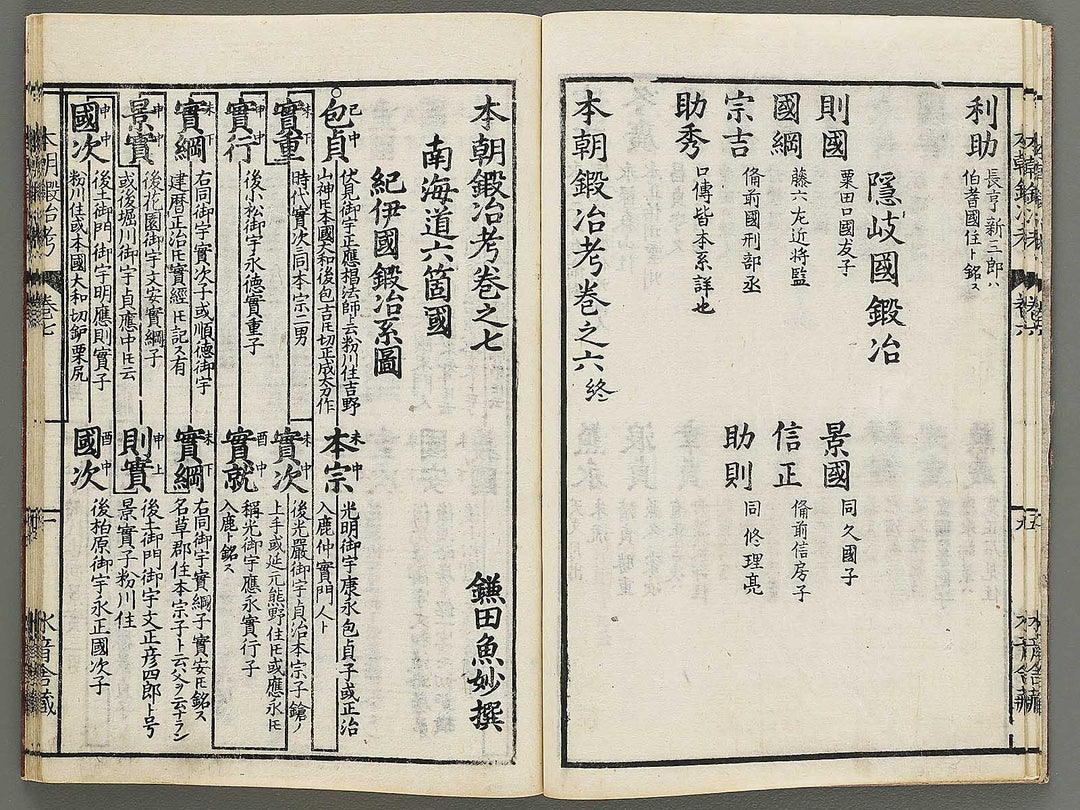 利助
長亨ノ新三郎ハ
伯耆國住ト銘ス
隠岐國鍛冶
則國
粟田口國友子
景國
同久國子
國綱
藤六左近將監
信正
俻前信房子
宗吉
俻前國刑部丞
助則
同修理亮
助秀
口傳皆本系詳也
本朝鍛冶考巻之六終
本朝鍛冶考巻之七
鎌田魚妙撰
南海道六箇國
紀伊國鍛冶系圖
包貞
伏見御宇正應楊法師ト云粉川住吉野
山神㪽本國大和後包吉㪽切正成大刀作
本宗
光明御宇康永包貞子或正治
入鹿仲實門人ト
實重
時代實次ニ同本宗二男
實次
後光嚴御宇貞治本宗子鎗ノ
上手或延元熊野住㪽或應永㪽
實行
後小松御宇永德實重子
實就
稱光御宇應永實行子
入鹿ト銘ス
實綱
右同御宇實次子或順德御宇
建暦正治㪽實經㪽記ス有
實綱
右同御宇實綱子實安㪽銘ス
名草郡住本宗子ト云父ヲ云ナラン
景實
後花園御宇文安實綱子
或後堀川御宇貞應中㪽云
則實
後土御門御宇文正彦四郎ト号
景實子粉川住
國次
後土御門御宇明應則實子
粉川住或本國大和切鈩栗尻
國次
後柏原御宇永正國次子
本朝鍛冶考
巻七
一
水音舎蔵